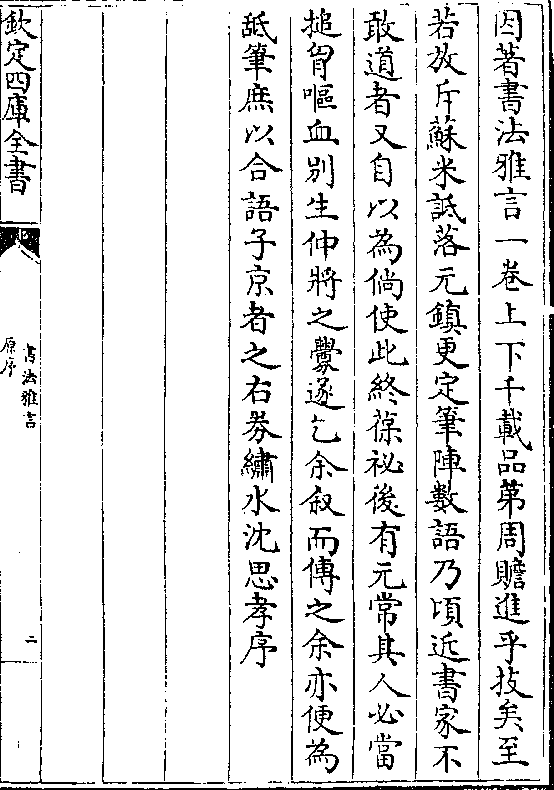 因著書法雅言一卷上下千載品第周贍進乎技矣至
若放斥蘇米詆落元鎮更定筆陣數語乃頃近書家不
敢道者又自以為倘使此終葆祕後有元常其人必當
搥胷嘔血別生仲將之釁遂乞余叙而傳之余亦便為
舐筆庶以合語子京者之右劵繡水沈思孝序
欽定四庫全書
書法雅言
原序
二